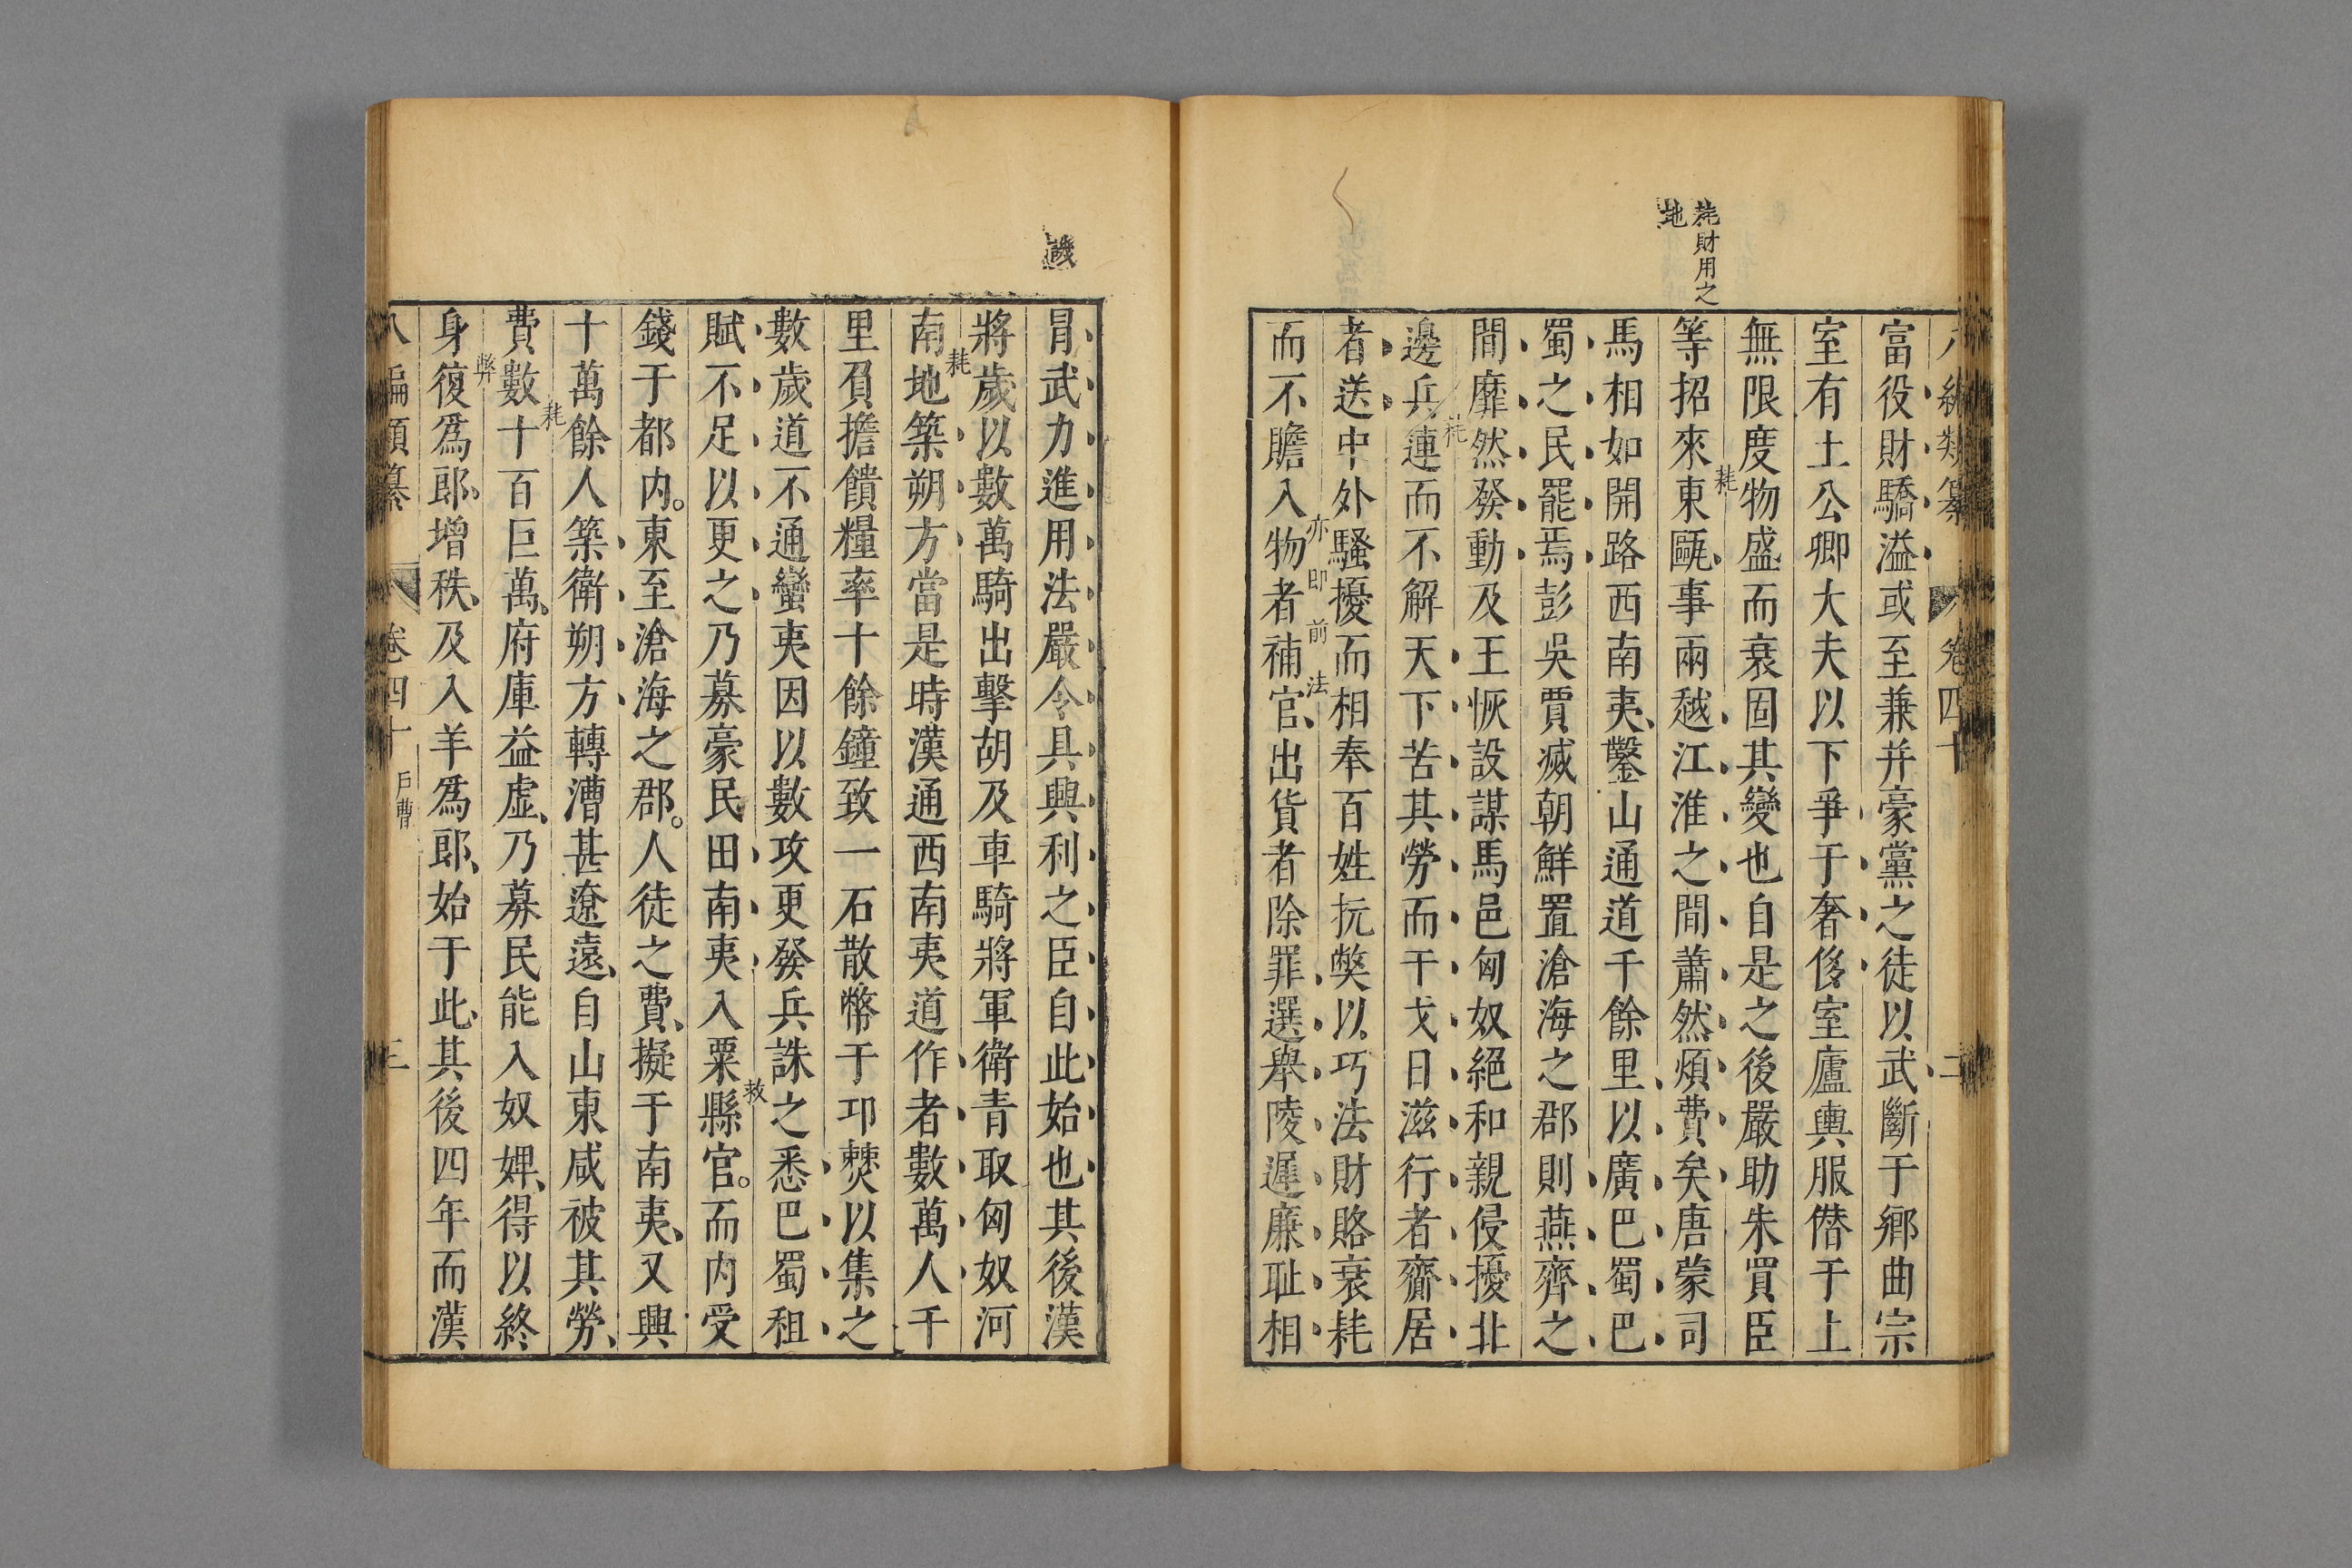 耗財用之
地
八編類纂 卷四十 二
富役財驕溢或至兼并豪黨之徒以武斷于鄉曲宗
室有土公卿大夫以下爭于奢侈室廬輿服僣于上
無限度物盛而衰固其變也自是之後嚴助朱買臣
耗
等招來東甌事兩越江淮之間蕭然煩費矣唐蒙司
馬相如開路西南夷鑿山通道千餘里以廣巴蜀巴
蜀之民罷焉彭吳賈滅朝鮮置滄海之郡則燕齊之
間靡然發動及王恢設謀馬邑匈奴絕和親侵擾北
耗
邊兵連而不解天下苦其勞而干戈日滋行者齎居
者送中外騷擾而相奉百姓抏獘以巧法財賂衰耗
亦即前法
而不贍入物者補官出貨者除罪選舉陵遲廉耻相
譏
冐武力進用法嚴令具興利之臣自此始也其後漢
將歲以數萬騎出擊胡及車騎將軍衛青取匈奴河
耗
南地築朔方當是時漢通西南夷道作者數萬人千
里負擔饋糧率十餘鐘致一石散幣于邛僰以集之
數歲道不通蠻夷因以數攻更發兵誅之悉巴蜀租
救
賦不足以更之乃募豪民田南夷入粟縣官。而内受
錢于都内。東至滄海之郡。人徒之費擬于南夷又興
十萬餘人築衛朔方轉漕甚遼遠自山東咸被其勞
耗
費數十百巨萬府庫益虛乃募民能入奴婢得以終
弊
身復爲郎增秩及入羊爲郎始于此其後四年而漢
八編類纂 卷四十 戶曹 三